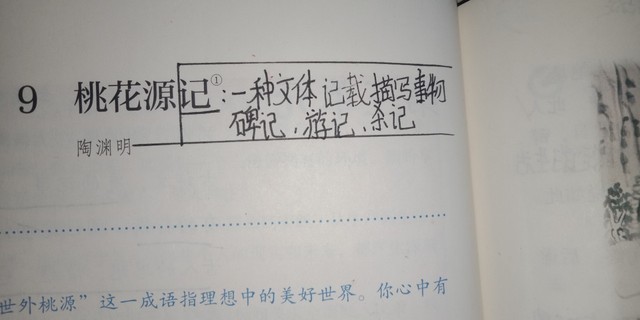 9 桃花源记①:一种文体 记载描写事物
碑记、游记、杂记
陶渊明
世外桃源”这一成语指理想中的美好世界。你心中有